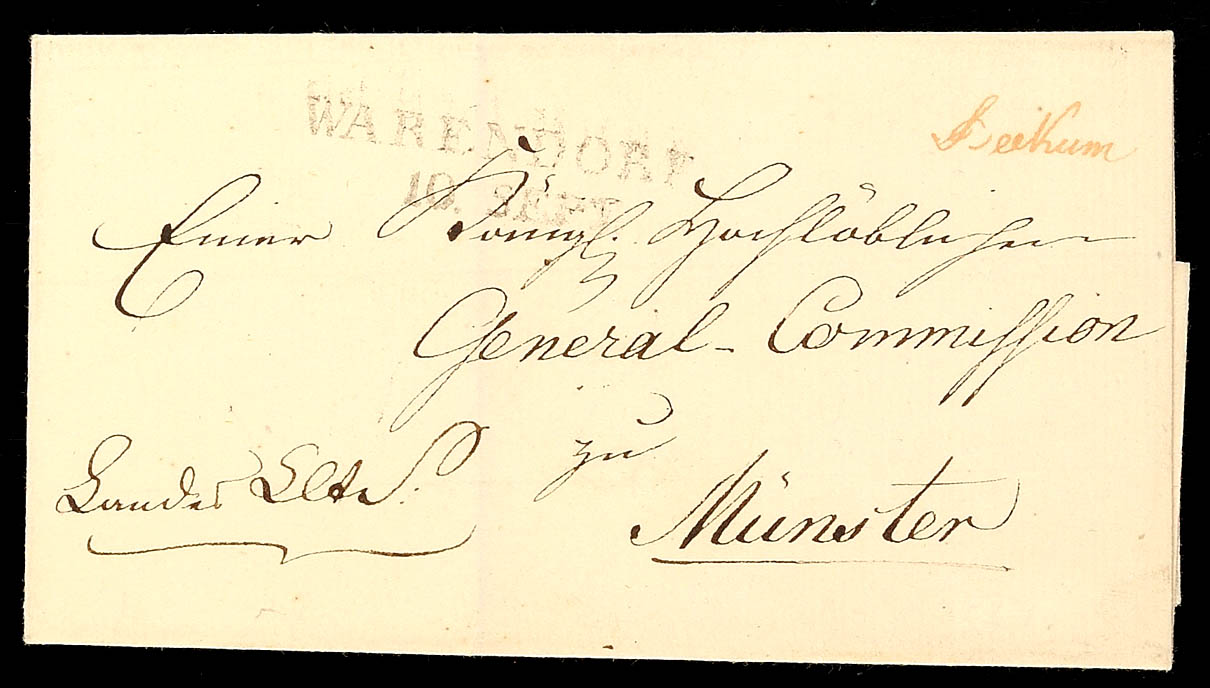 WARENDORF
10. SEPT
Einer Königl. Hochlöblichen
General-Commission
zu
Münster
Landes